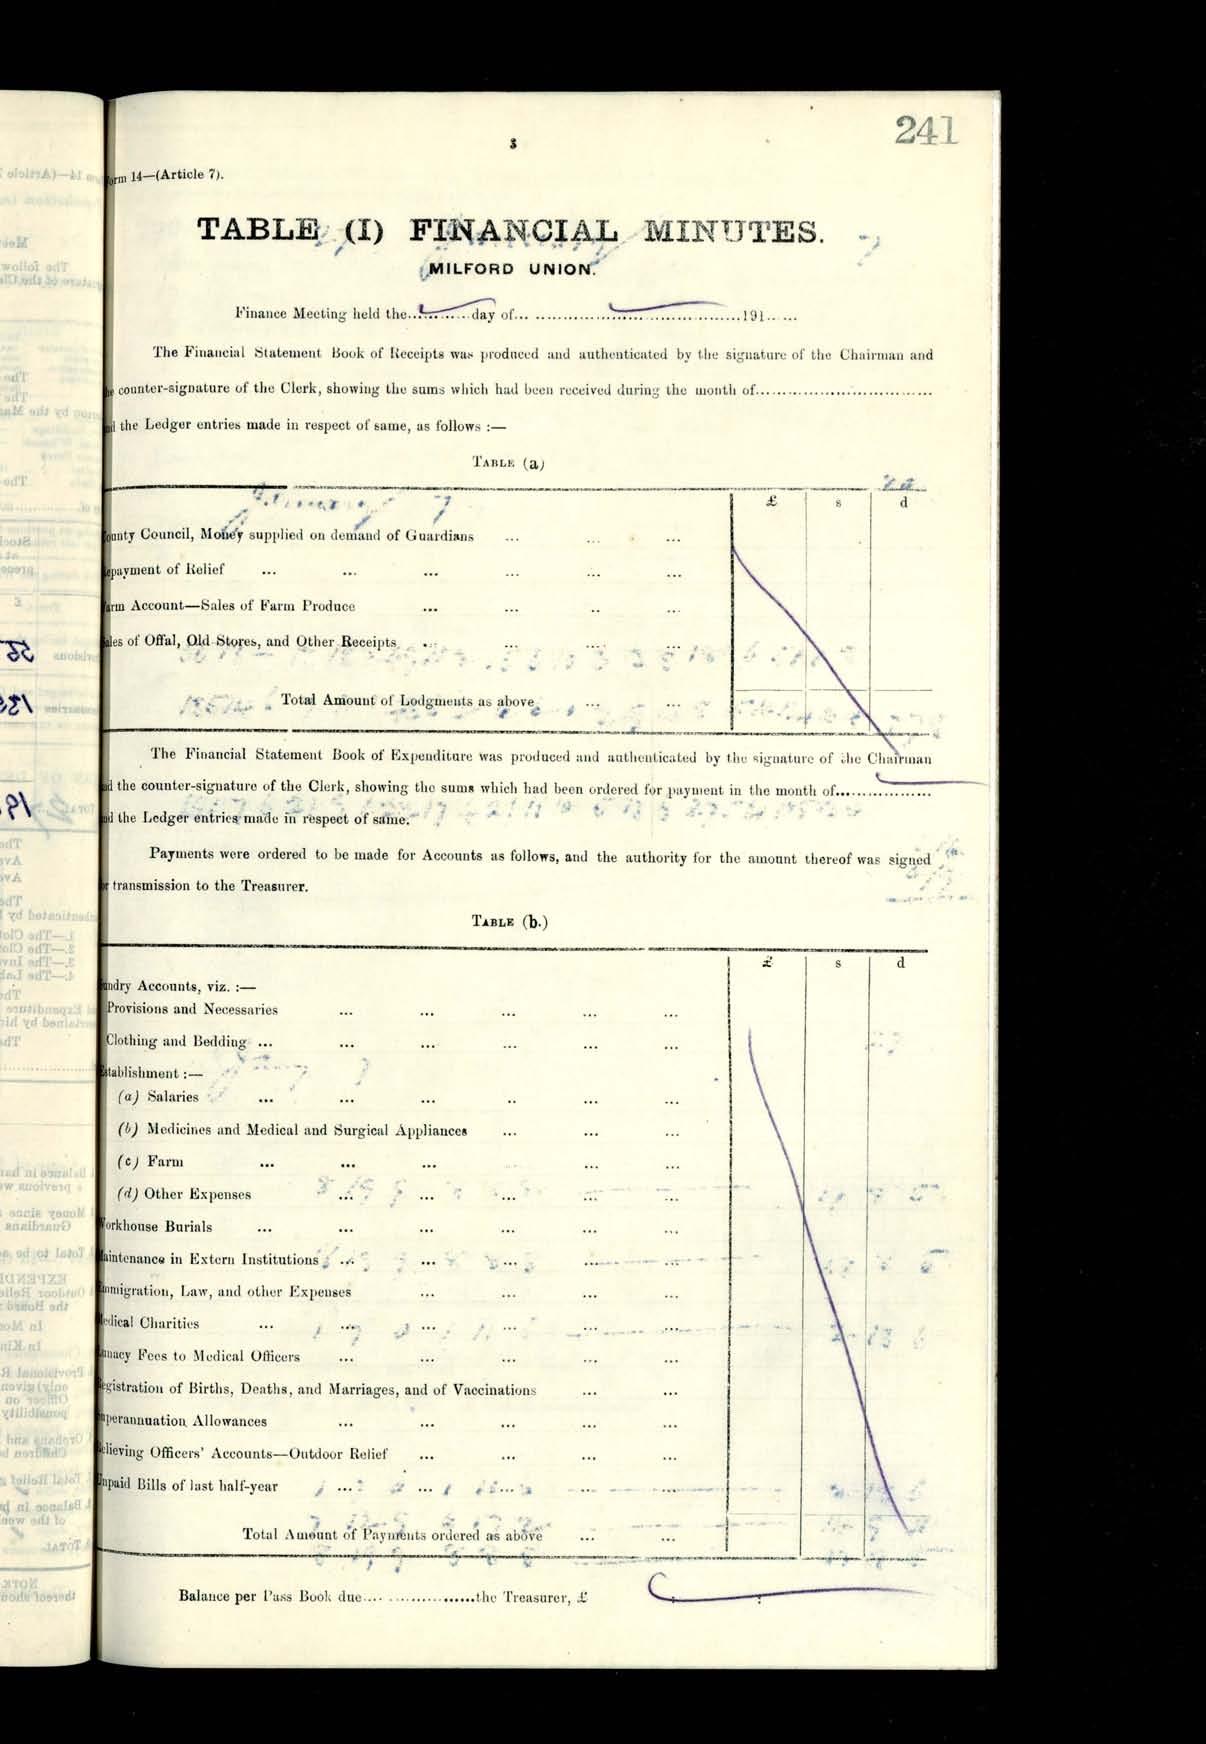 241
3
orm 14—(Article 7).
TABLE (I) FINANCIAL MINUTES.
MILFORD UNION.
Finance Meeting held the............day of........................................191......
The Financial Statement Book of Receipts was produced and authenticated by the signature of the Chairman and
he counter-signature of the Clerk, showing the sums which had been received during the month of..............................
nd the Ledger entries made in respect of same, as follows :—
TABLE (a)
£ s d
ounty Council, Money supplied on demand of Guardians ... ... ...
epayment of Relief ... ... ... ... ... ...
arm Account—Sales of Farm Produce ... ... .. ...
ales of Offal, Old Stores, and Other Receipts ... ... ... ...
Total Amount of Lodgments as above ... ...
The Financial Statement Book of Expenditure was produced and authenticated by the signature of the Chairman
nd the counter-signature of the Clerk, showing the sums which had been ordered for payment in the month of.................
nd the Ledger entries made in respect of same.
Payments were ordered to be made for Accounts as follows, and the authority for the amount thereof was signed
or transmission to the Treasurer.
TABLE (b.)
£ s d
undry Accounts, viz. :—
Provisions and Necessaries ... ... ... ... ...
Clothing and Bedding ... ... ... ... ... ...
stablishment :—
(a) Salaries ... ... ... .. ... ...
(b) Medicines and Medical and Surgical Appliances ... ... ...
(c) Farm ... ... ... ... ... ...
(d) Other Expenses ... ... ... ... ...
orkhouse Burials ... ... ... ... ... ...
aintenance in Extern Institutions ... ... ... ... ...
mmigration, Law, and other Expenses ... ... ... ...
edical Charities ... ... ... ... ... ...
unacy Fees to Medical Officers ... ... ... ... ...
egistration of Births, Deaths, and Marriages, and of Vaccinations ... ...
uperannuation Allowances ... ... ... ... ...
elieving Officers' Accounts—Outdoor Relief ... ... ... ...
npaid Bills of last half-year ... ... ... ... ...
Total Amount of Payments ordered as above ... ...
Balance per Pass Book due......................the Treasurer, £ : :